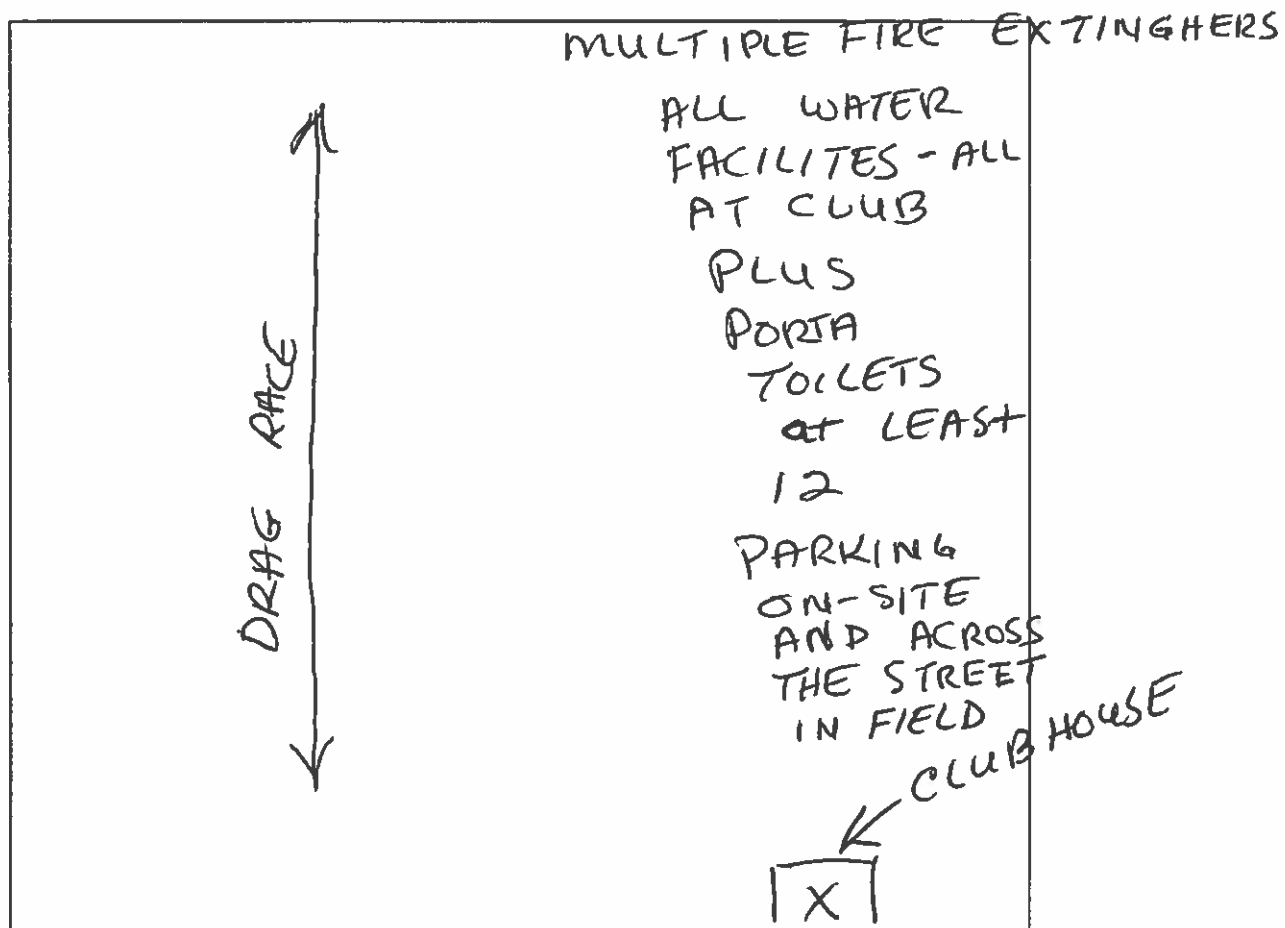 MULTIPLE FIRE EXTINGHERS
ALL WATER
FACILITES - ALL
AT CLUB
PLUS
PORTA
TOILETS
at LEAST
12
PARKING
ON-SITE
AND ACROSS
THE STREET
IN FIELD
CLUB HOUSE
X
DRAG RACE